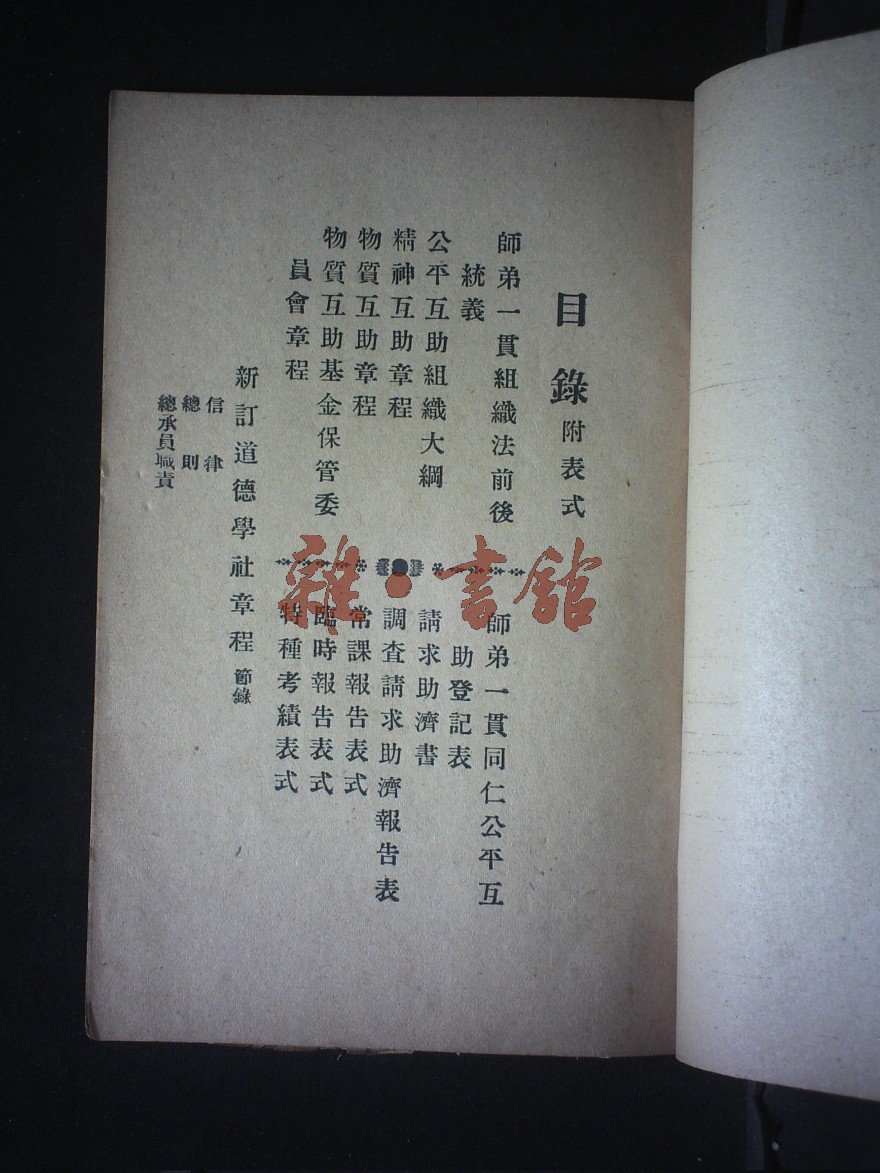 目錄附表式
師弟一貫組織法前後
統義
公平互助組織大綱
精神互助章程
物質互助章程
物質互助基金保管委
員會章程
師弟一貫同仁公平互
助登記表
請求助濟書
調查請求助濟報告表
常課報告表式
臨時報告表式
特種考績表式
新訂道德學社章程 節錄
信律
總則
總承員職責
雜·書館